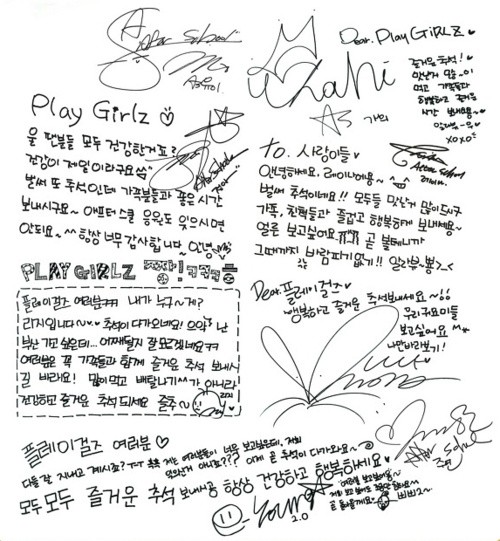 After School
Play Girlz ♡
울 팬분들 모두 건강하거죠?
건강이 제일이라구요
벌써 또 추석인데 가족분들과 좋은시간
보내시구요~ 애프터스쿨 응원도 잊으시면
안되요~^^ 항상 너무 감사합니다~ 안녕
Dear. Play GiRLZ ♥
즐거운 추석!
맛난거 많~이
먹고 가족들과
행복하고 즐거운
시간 보내용~
xoxo
가희
To. 사랑이들 ♥
After School
레이나
안녕하세요, 레이나에용~
벌써 추석이네요!! 모두들 맛난거 많이드시구
가족, 친척들과 즐겁고 행복하게 보내세용~
얼른 보고싶어요 ㅠㅠ 곧 볼테니까
그때까지 바람피기없기!! 알라뷰뿅>_<
PLAY GIRLZ 쪼자! ㅋㅋㅋㅎ
플레이걸즈 여러분ㅋㅋ 내가 누구~게?
리지입니다~ 추석이 다가오네요! 으악 난
부산 가고 싶은데... 어째될지 잘 모르겠네요ㅋㅋ
여러분은 꼭 가족들과 함께 즐거운 추석 보내시
길 바라요! 많이먹고 배탈나기^^가 아니라
건강하고 즐거운 추석 되세요 즐추~
Dear 플레이걸즈♥
행복하고 즐거운 추석보내세요~!!
우리귀요미들
보고싶어요 ^^
나만바라보기!
nana
플레이걸즈 여러분♡
다들 잘 지내고 계시죠? ㅜㅜ 흑흑 저는 여러분들이 너무 보고싶은데, 저희
잊으신거 아니죠??? 이제 곧 추석이 다가와요~
모두모두 즐거운 추석 보내시공 항상 건강하고 행복하세요♥
young
2.0
After School
주연
여러분 보고싶어용~
곧 돌아올게요~ 삐삐2~